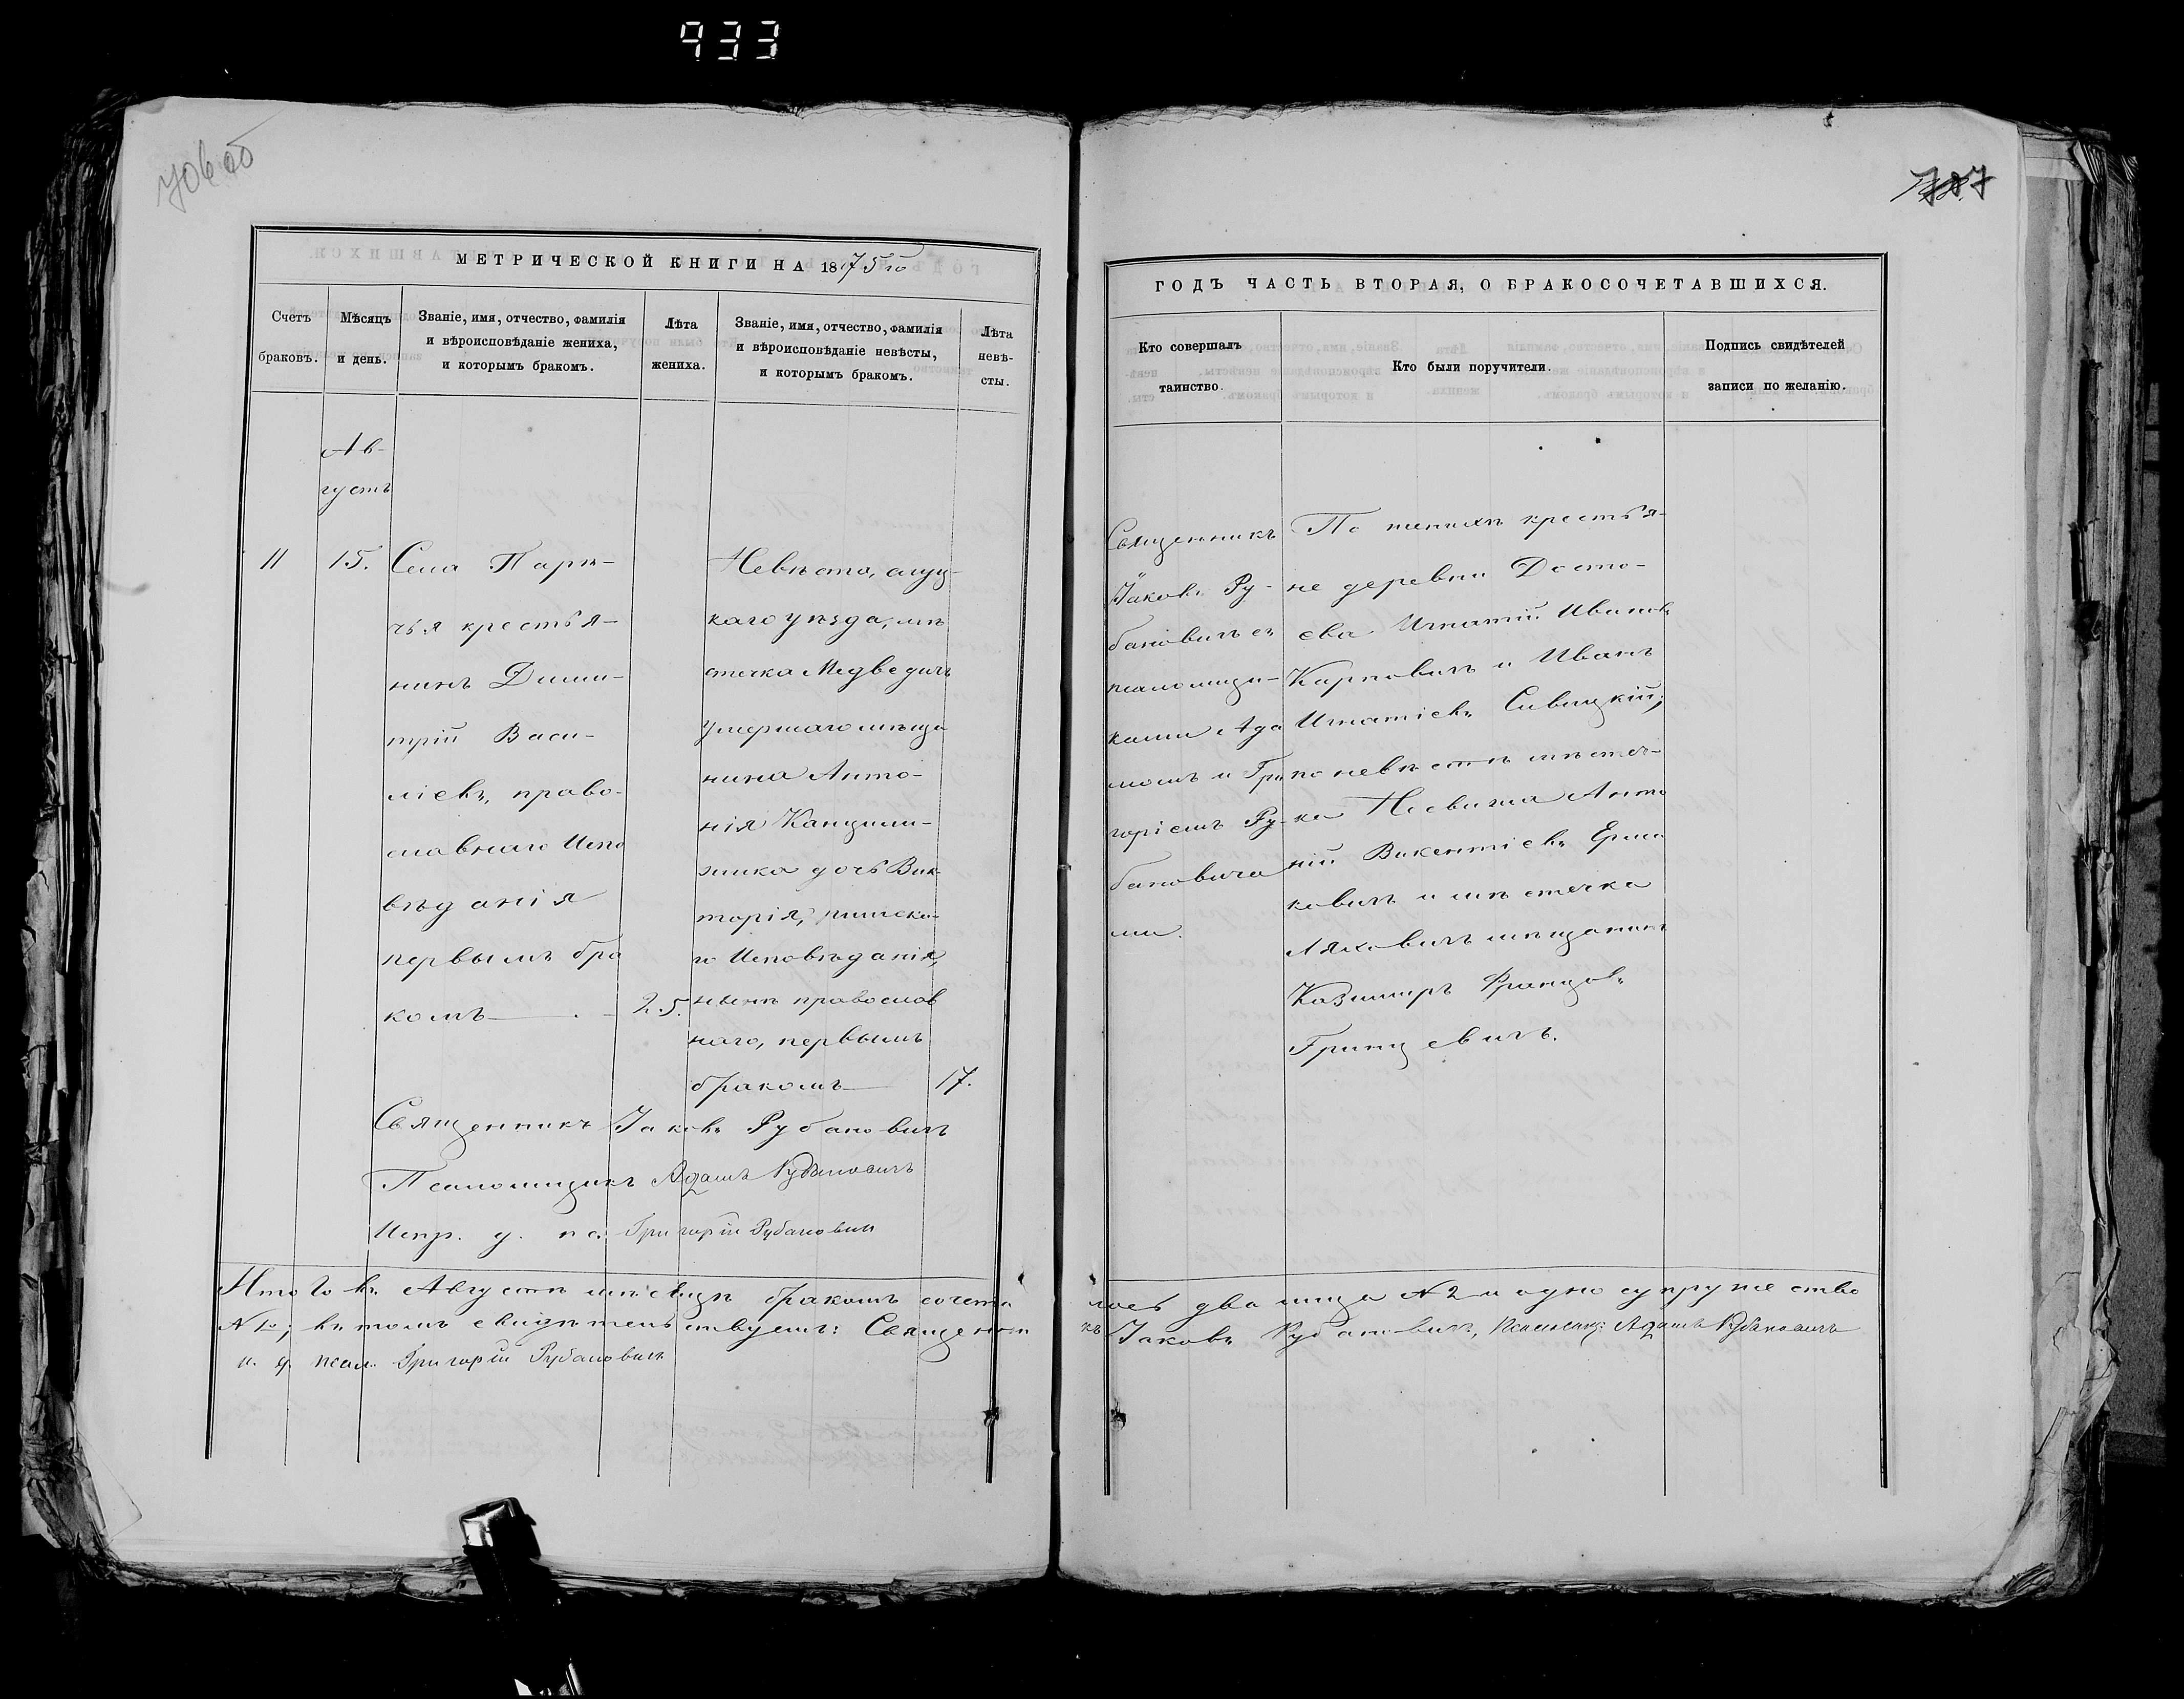 933
706 об
707
МЕТРИЧЕСКОЙ КНИГИ НА 1875 го
Счетъ браковъ.
Мѣсяцъ и день.
Званіе, имя, отчество, фамилія и вѣроисповѣданіе жениха, и которымъ бракомъ.
Лѣта жениха.
Званіе, имя, отчество, фамилія и вѣроисповѣданіе невѣсты, и которымъ бракомъ.
Лѣта невѣ-сты.
Ав-
густъ
11
15.
Села Парѣ-
чья крестья-
нинъ Дими-
трій Васи-
ліевъ, право-
славнаго Испо
вѣданія
первымъ бра
комъ
25.
Невѣста, слуц-
каго уѣзда, мѣ
стечка Медведичъ
умершаго мѣща
нина Анто-
нія
дочь Вик-
торія, римска-
го Исповѣданія,
нынѣ православ
наго, первымъ
бракомъ
17.
Священникъ Іаковъ Рубановичъ
Псаломщикъ Адамъ Рубановичъ
Испр. д. пс. Григорій Рубановичъ
ГОДЪ ЧАСТЬ ВТОРАЯ, О БРАКОСОЧЕТАВШИХСЯ.
Кто совершалъ таинство.
Кто были поручители.
Подпись свидѣтелей записи по желанію.
Священникъ
Іаковъ Ру-
бановичъ съ
псаломщи-
ками Ада
момъ и Гри
горіемъ Ру-
бановича
ми.
По женихѣ крестья-
не деревни Досто-
ева Игнатій Ивановъ
Карповичъ и Иванъ
Игнатіевъ Сивицкій;
по невѣстѣ мѣстеч-
ка Анто
ній Викентіевъ Ерми
ковичъ и мѣстечка
Ляховичъ мѣщанинъ
Казимиръ Францовъ
Гринцевичъ.
Итого въ Августѣ мѣсяцѣ бракомъ сочета
лось два лица № 2 и одно супружество
№ 1о; въ томъ свидѣтельствуемъ: Священни
къ Іаковъ Рубановичъ, Псаломщ: Адамъ Рубановичъ
и. д. псал. Григорій Рубановичъ